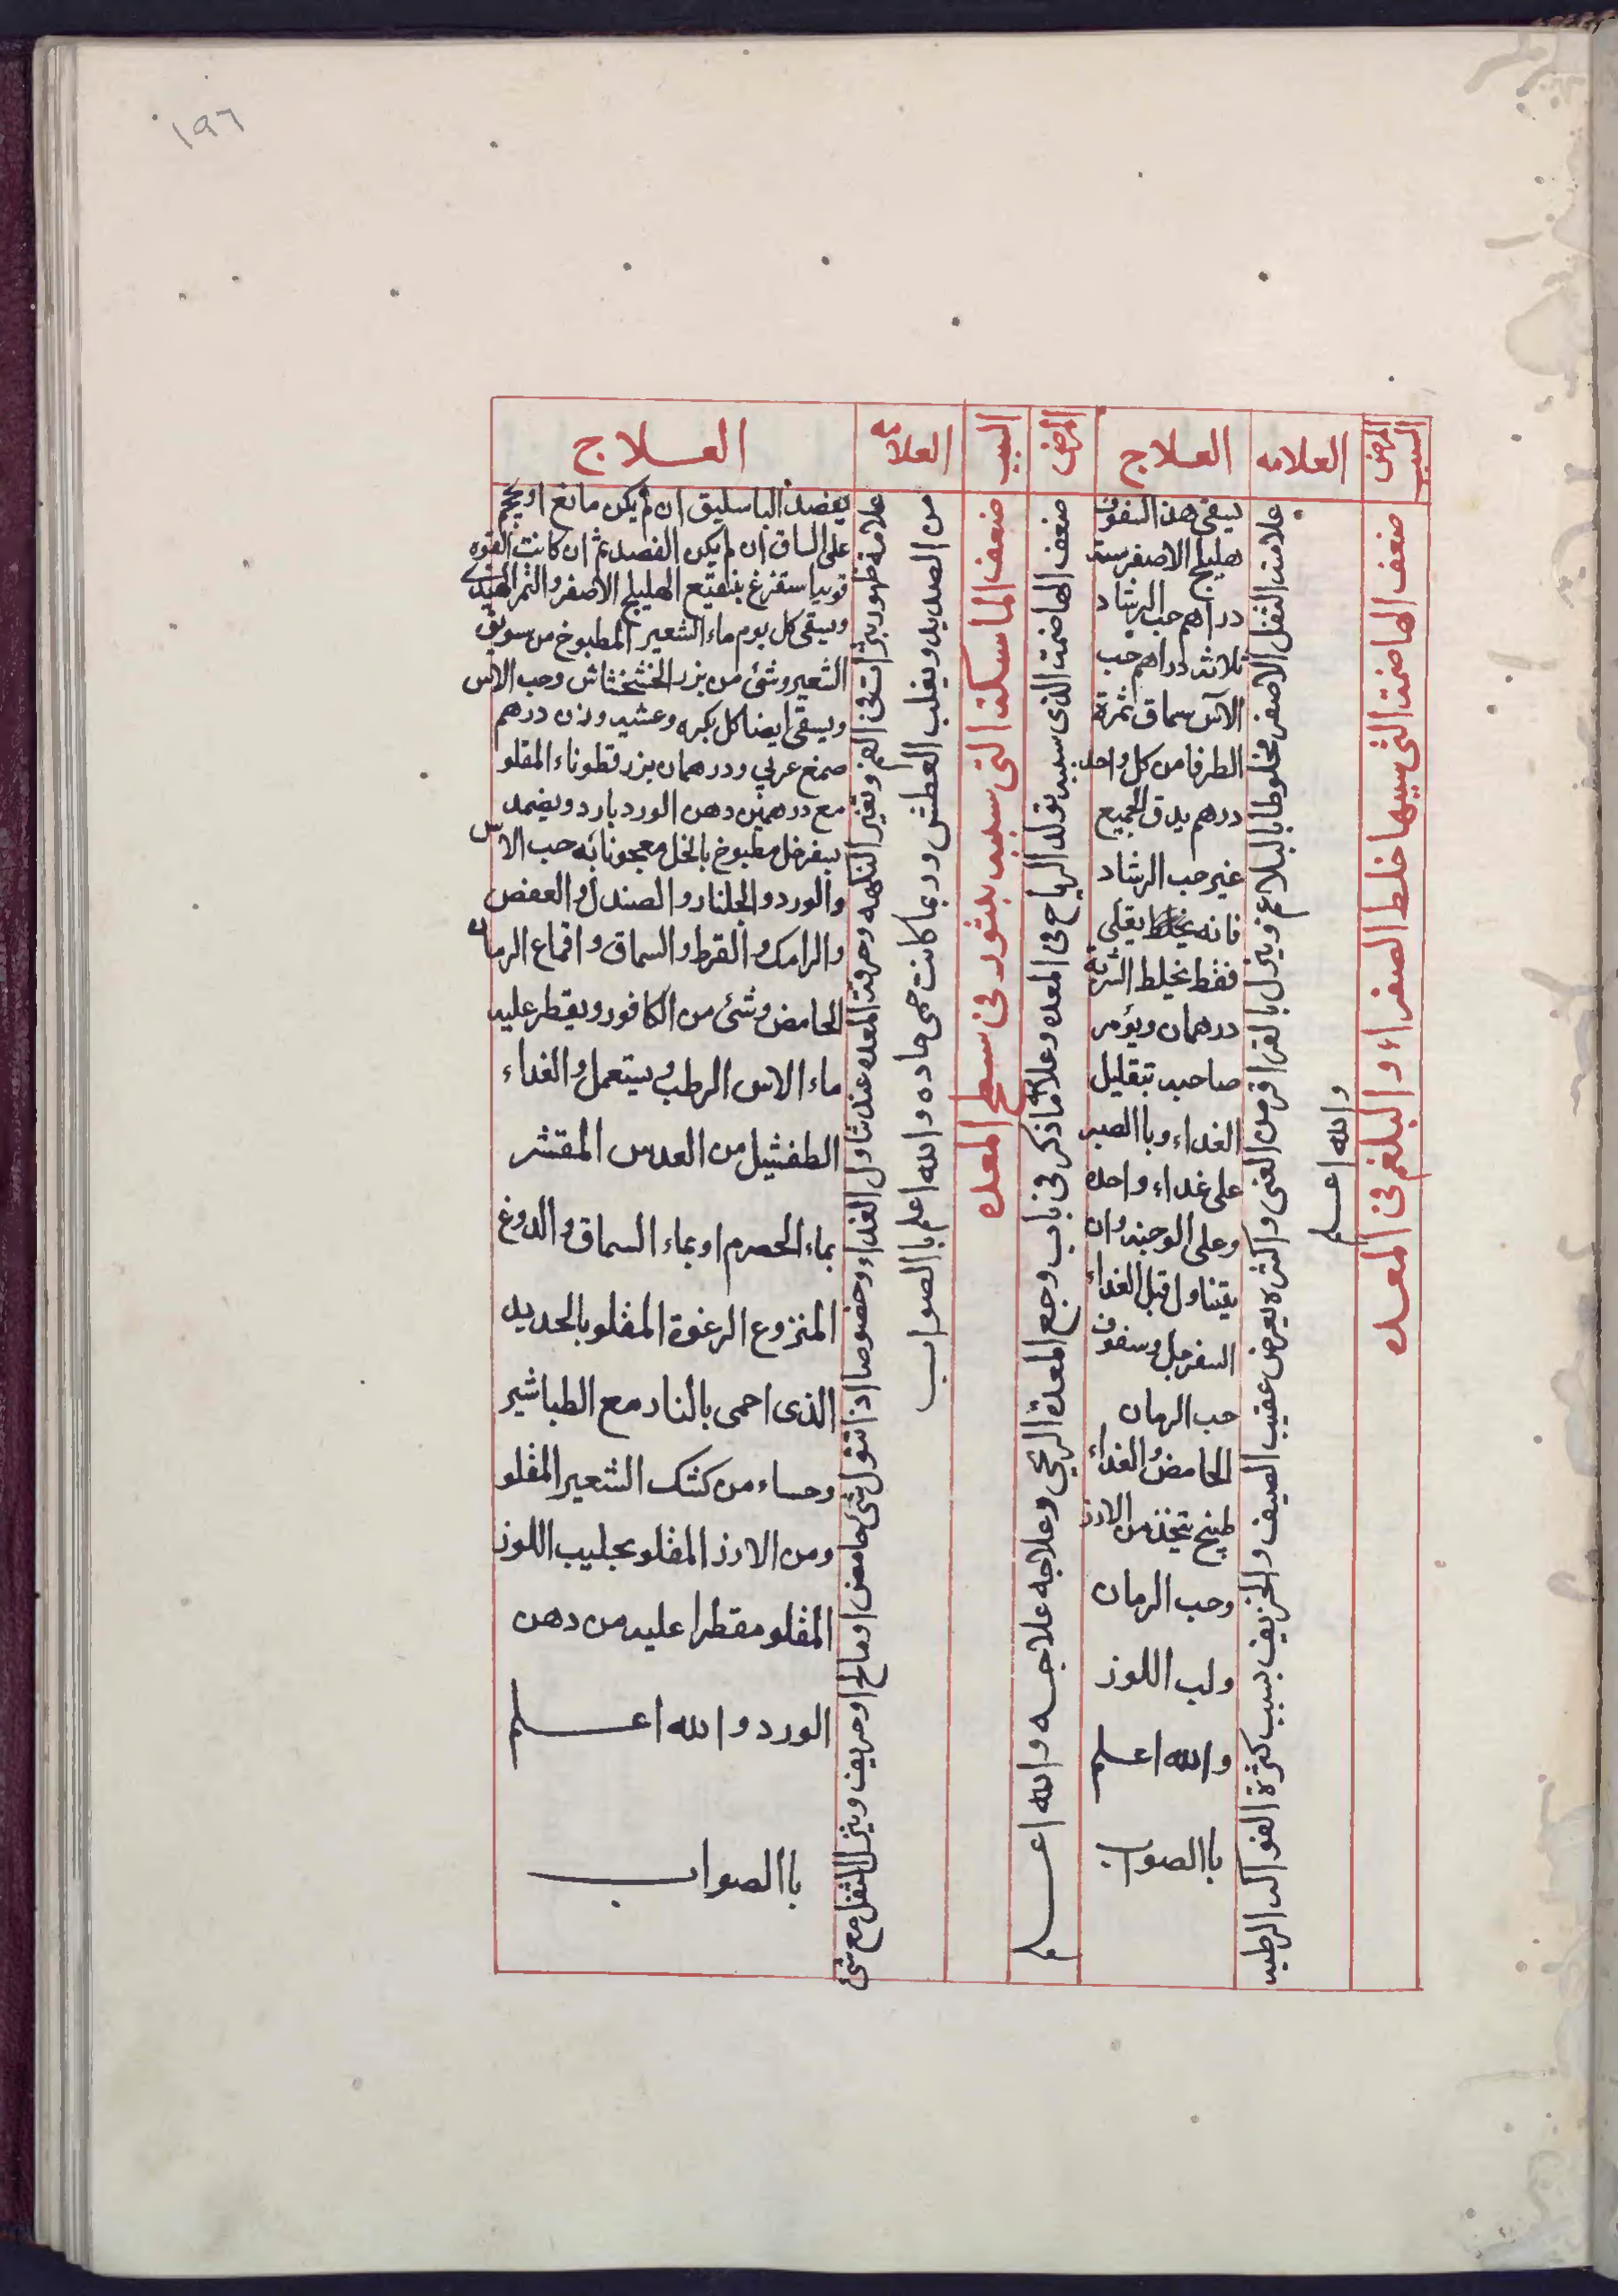 ١٩٦
السبب
المرض
العلامه
العلاج
المرض
السبب
العلامه
العلاج
ضعف الهاضمة التى سببها خلط الصفراء والبلغم فى المعده
علامته الثفل الاصفر مخلوطا بالبلاغم وينزل بالقراقر من الغى واكثره يعرض عقيب الصيف والخريف بسبب كثرة الفواكه الرطبه
والله اعلم
يسقى هذا السفوف
هليلج الاصفر ستة
دراهم حب الرشاد
ثلاثة دراهم حب
الآس سماق ثمرة
الطرفا من كل واحد
درهم يدق الجميع
غير حب الرشاد
فانه يقلى
فقط يخلط الشربة
درهمان ويؤمر
صاحبه بتقليل
الغداء وباالصبر
على غداء واحده
وعلى الوجبه وان
يتناول قبل الغداء
السفرجل وسفوف
حب الرمان
الحامض والغداء
طبيخ يتخذ من الارز
وحب الرمان
ولب اللوز
والله اعلم
باالصواب
ضعف الهاضمة الذى سببه تولد الرياح فى المعده وعلامته ما ذكر فى باب وجع المعدة الريحي وعلاجه علاجه والله اعلم
ضعف الماسكة التى سببه بثور فى سطح المعده
علامة ظهور بثرات فى الفم وتغير النكهه وحرقة المعده عند تناول الغداء وخصوصا اذا تنول شئ حامض او مالح او حريف وينزل الثفل مع شئ
من الصديد ويغلب العطش وربما كانت حمى حاده والله اعلم باالصواب
يفصد الباسليق ان لم يكن مانع او يحجم
على الساق ان لم يكن الفصد ثم ان كانت القوه
قويه استفرغ بنقيع الهليلج الاصفر والتمر الهندى
ويسقى كل يوم ماء الشعير المطبوخ من سويق
الشعير وشئ من بزر الخشخشاش وحب الآس
ويسقى ايضا كل بكره وعشيه وزن درهم
صمغ عربي ودرهمان بزر قطوناء المقلو
مع درهمين دهن الورد بارد ويضمد
بسفرجل مطبوخ بالخل معجونا به حب الآس
والورد والجلنار والصندل والعفص
والرامك والقرط والسماق واقماع الرمان
الحامض وشئ من الكافور ويقطر عليه
ماء الاس الرطب ويستعمل والغداء
الطفشيل من العدس المقشر
بماء الحصرم او بماء السماق والدوغ
المنزوع الرغوة المقلو بالحديد
الذى احمى بالنار مع الطباشير
وحساء من كشك الشعير المقلو
ومن الارز المقلو بحليب اللوز
المقلو مقطرا عليه من دهن
الورد والله اعلم
باالصواب